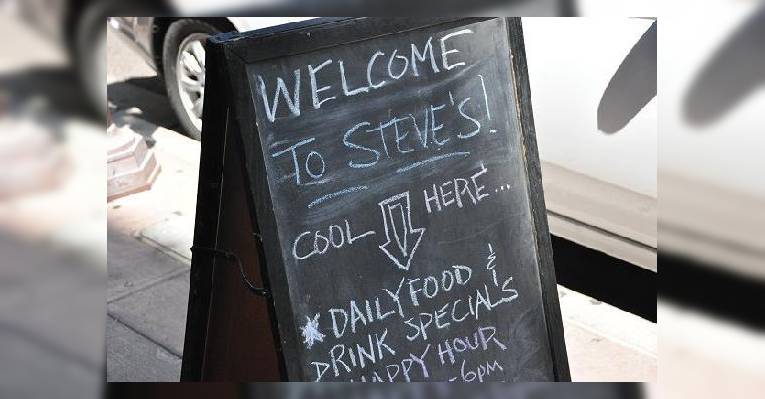 WELCOME
TO STEVE'S!
COOL HERE...
*DAILY FOOD &
DRINK SPECIALS
HAPPY HOUR
-6pm